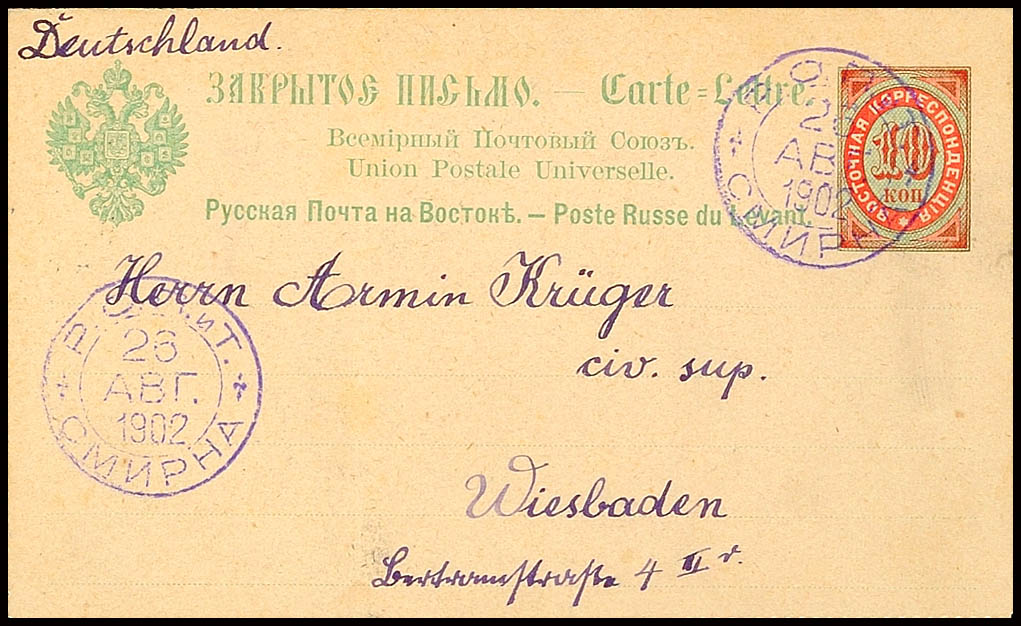 Deutschland.
ЗАКРЫТОЕ ПИСЬМО. — Carte=Lettre.
Всемірный Почтовый Союзъ.
Union Postale Universelle.
Русская Почта на Востокѣ. — Poste Russe du Levant.
ВОСТОЧНАЯ КОРРЕСПОНДЕНЦІЯ
10
КОП
26
АВГ
1902
СМИРНА
Herrn Armin Krüger
civ. sup.
Р.О.П.иТ.
26
АВГ.
1902
СМИРНА
Wiesbaden
Bertramstraße 4 II